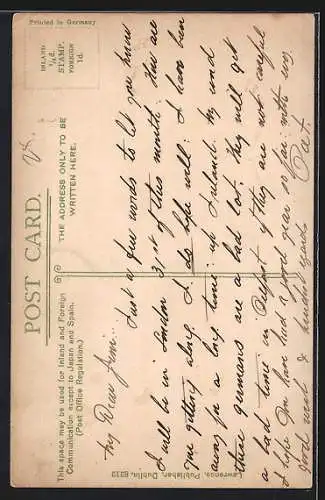 Printed in Germany
INLAND
½d.
STAMP.
FOREIGN
1d.
POST CARD.
This space may be used for Inland and Foreign
Communication except to Japan and Spain.
(Post Office Regulation.)
THE ADDRESS ONLY TO BE
WRITTEN HERE.
Lawrence, Publisher, Dublin.
My Dear Jim:
Just a few words to let you know
I will be in London 31st of this month. How are
you getting along. I do hope well. I have been
for a long time up Ireland. My word
these germans are a bad lot. They will get
a bad time in if they are not careful
I hope you have had a good year so far. with my
good wish & kindest regards Pat.